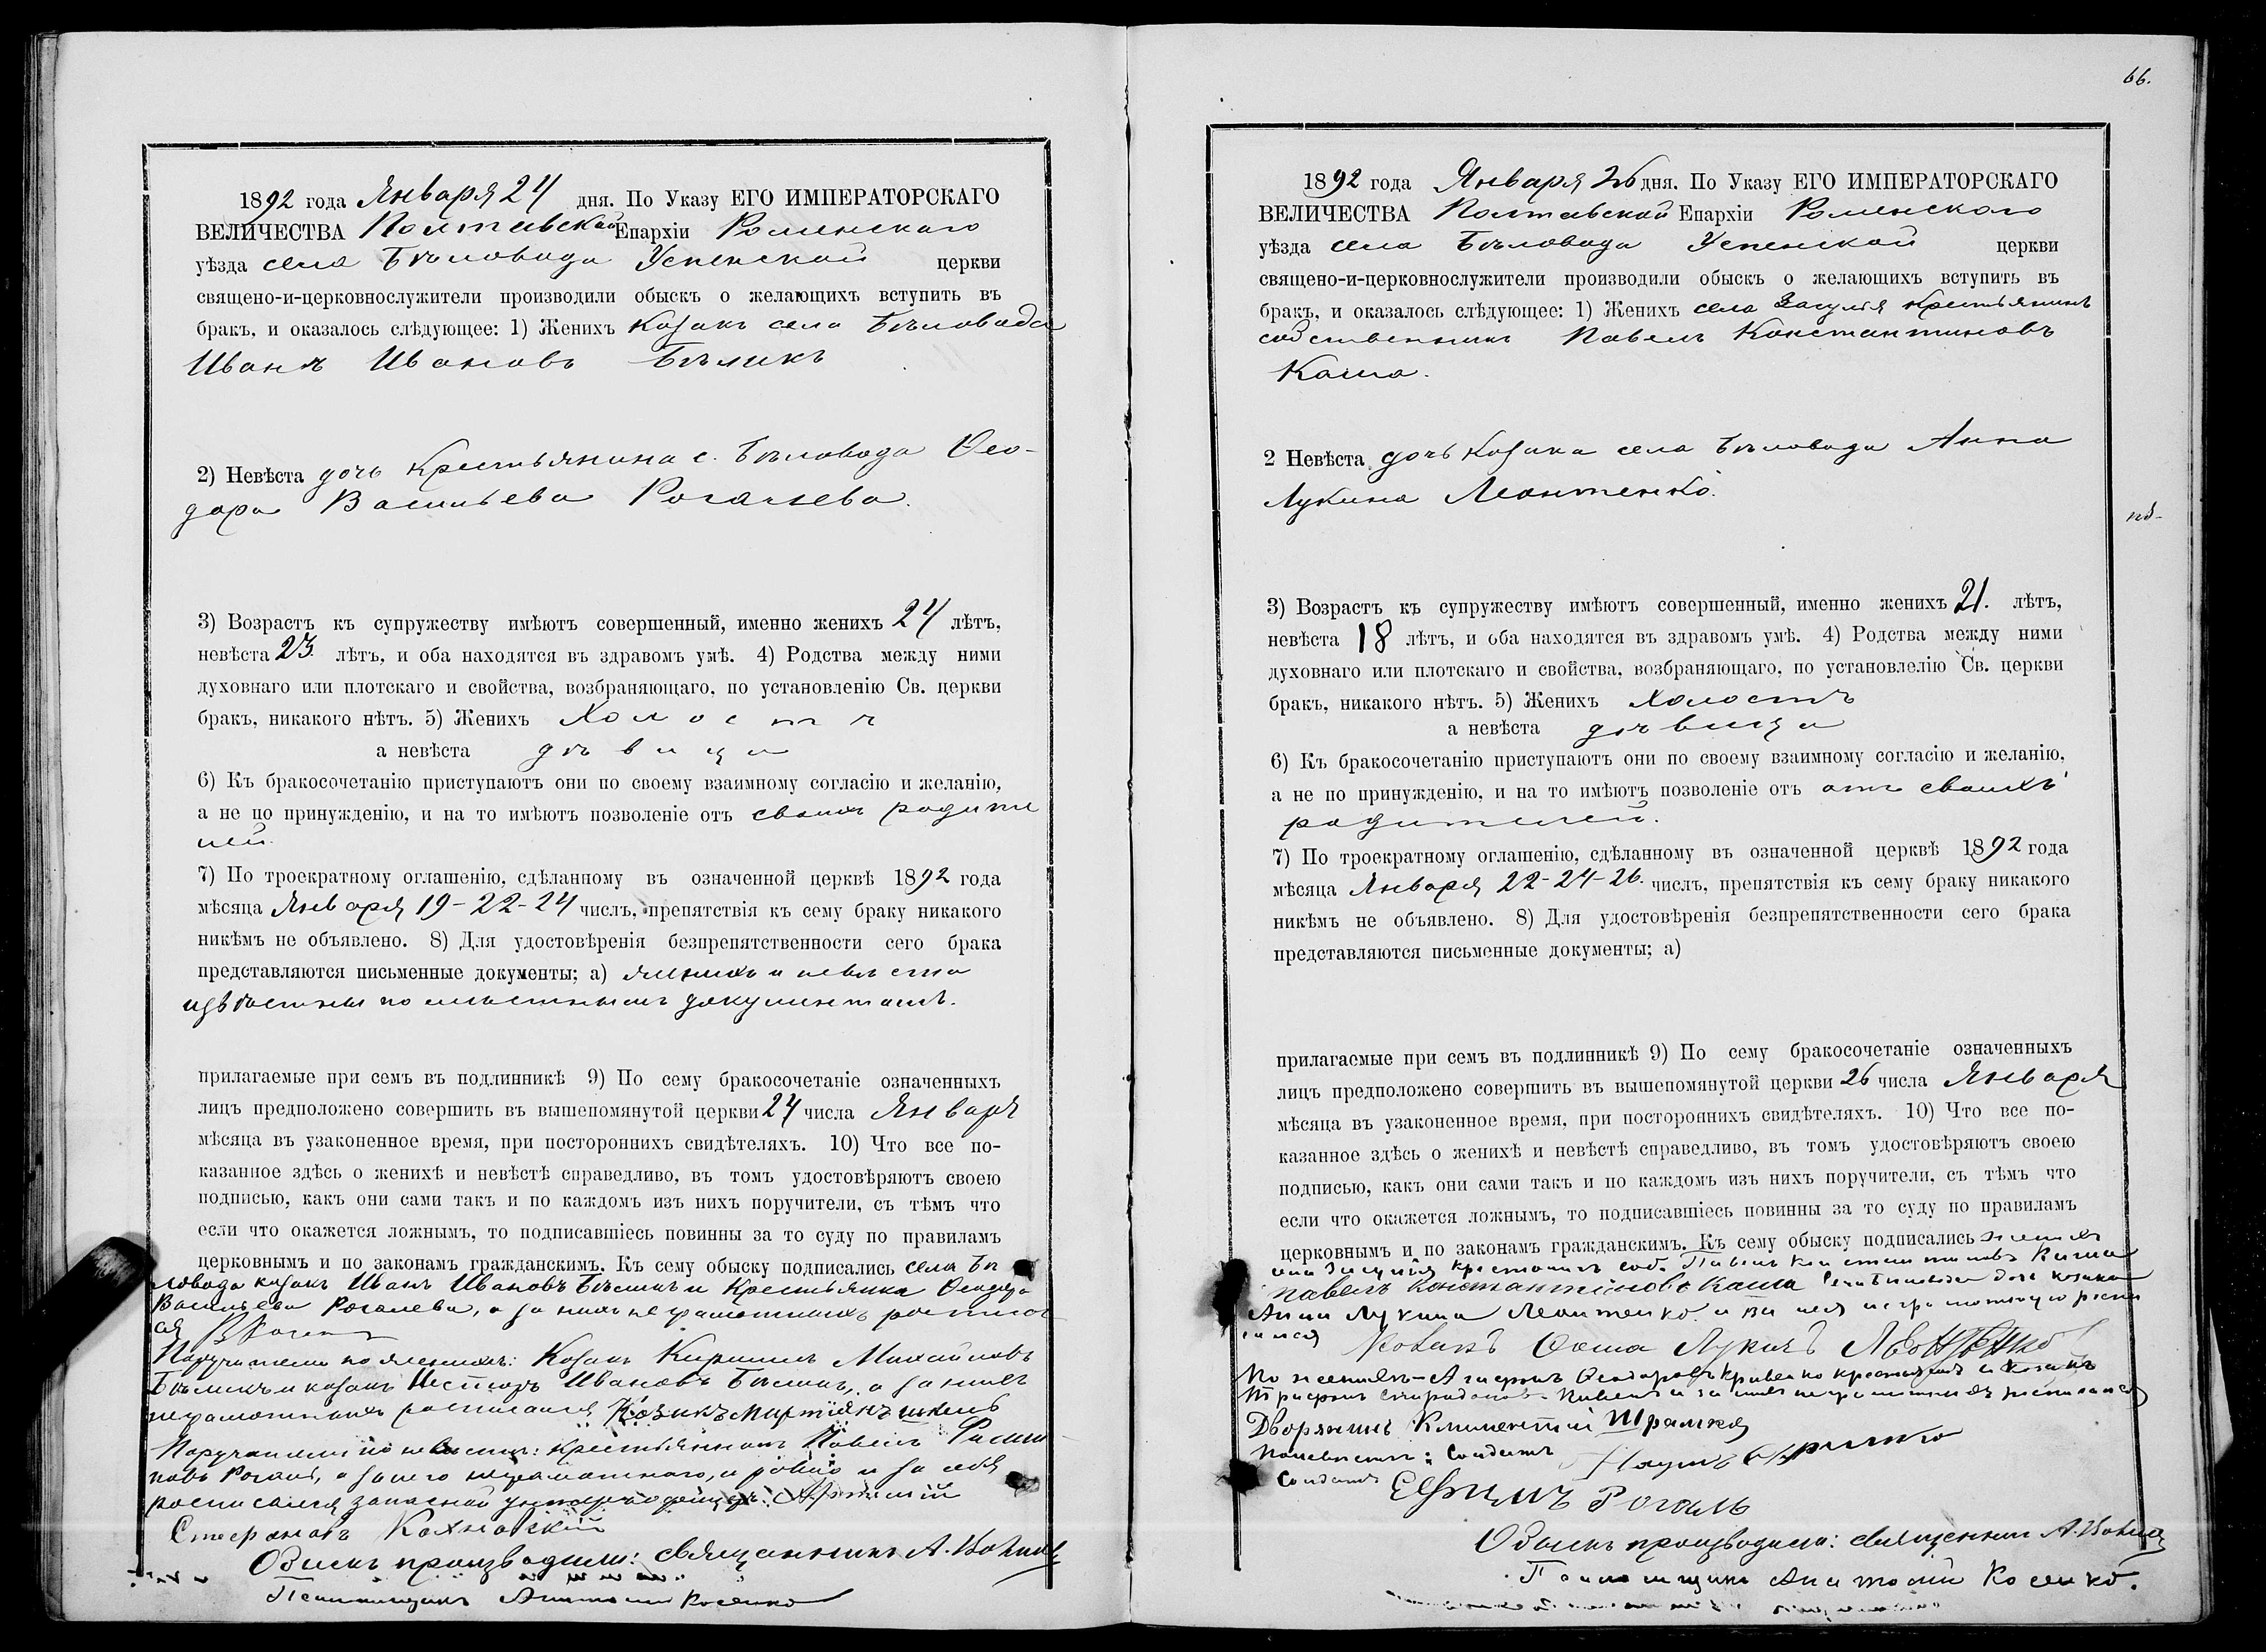 1892 года Января 24 дня. По Указу ЕГО ИМПЕРАТОРСКАГО
ВЕЛИЧЕСТВА Полтавской Епархіи Роменскаго
уѣзда села Бѣловода Успенской церкви
священо-и-церковнослужители производили обыскъ о желающихъ вступить въ
бракъ, и оказалось слѣдующее: 1) Женихъ Козакъ села Бѣловода
Иванъ Ивановъ Бѣликъ
2) Невѣста дочь Крестьянина с. Бѣловода Ѳео-
дора Васильева Рогалева.
3) Возрастъ къ супружеству имѣютъ совершенный, именно женихъ 24 лѣтъ,
невѣста 23 лѣтъ, и оба находятся въ здравомъ умѣ. 4) Родства между ними
духовнаго или плотскаго и свойства, возбраняющаго, по установленію Св. церкви
бракъ, никакого нѣтъ. 5) Женихъ Холостъ
а невѣста дѣвица
6) Къ бракосочетанію приступаютъ они по своему взаимному согласію и желанію,
а не по принужденію, и на то имѣютъ позволеніе отъ своихъ родите
лей.
7) По троекратному оглашенію, сдѣланному въ означенной церквѣ 1892 года
мѣсяца Января 19-22-24 числъ, препятствія къ сему браку никакого
никѣмъ не объявлено. 8) Для удостовѣренія безпрепятственности сего брака
представляются письменные документы; а) женихъ и невѣста
извѣстны по мѣстнымъ документамъ.
прилагаемые при семъ въ подлинникѣ 9) По сему бракосочетаніе означенныхъ
лицъ предположено совершить въ вышепомянутой церкви 24 числа Января
мѣсяца въ узаконенное время, при постороннихъ свидѣтеляхъ. 10) Что все по-
казанное здѣсь о женихѣ и невѣстѣ справедливо, въ томъ удостовѣряютъ своею
подписью, какъ они сами такъ и по каждомъ изъ нихъ поручители, съ тѣмъ что
если что окажется ложнымъ, то подписавшіесь повинны за то суду по правиламъ
церковнымъ и по законамъ гражданскимъ. Къ сему обыску подписались села Бѣ
ловода козакъ Иванъ Ивановъ Бѣликъ и Крестьянка Ѳеодора
Васильева Рогалева, а за нихъ неграмотныхъ росписал
ся
Поручители по женихѣ: Козакъ Кирилъ Михайловъ
Бѣликъ и козакъ Несторъ Ивановъ Бѣликъ, а за нихъ
неграмотныхъ росписался Козакъ Мартіянъ
Поручители по невѣстѣ: крестьянинъ Павелъ
новъ Рогаль, а за него неграмотнаго, и за себя
росписался запасной унтеръ-офицеръ Артемій
Стефановъ Кохновскій
Обыскъ производили: священникъ А.
Псаломщикъ Анатолій Косенко
66.
1892 года Января 26 дня. По Указу ЕГО ИМПЕРАТОРСКАГО
ВЕЛИЧЕСТВА Полтавской Епархіи Роменскаго
уѣзда села Бѣловода Успенской церкви
священо-и-церковнослужители производили обыскъ о желающихъ вступить въ
бракъ, и оказалось слѣдующее: 1) Женихъ села Засулья крестьянинъ
собственникъ Павелъ Константиновъ
Каша.
2 Невѣста дочь Козака села Бѣловода Анна
Лукина Леонтенко.
3) Возрастъ къ супружеству имѣютъ совершенный, именно женихъ 21. лѣтъ,
невѣста 18 лѣтъ, и оба находятся въ здравомъ умѣ. 4) Родства между ними
духовнаго или плотскаго и свойства, возбраняющаго, по установлелію Св. церкви
бракъ, никакого нѣтъ. 5) Женихъ Холостъ
а невѣста дѣвица
6) Къ бракосочетанію приступаютъ они по своему взаимному согласію и желанію,
а не по принужденію, и на то имѣютъ позволеніе отъ отъ своихъ
родителей.
7) По троекратному оглашенію, сдѣланному въ означенной церквѣ 1892 года
мѣсяца Января 22-24-26. числъ, препятствія къ сему браку никакого
никѣмъ не объявлено. 8) Для удостовѣренія безпрепятственности сего брака
представляются письменные документы; а)
прилагаемые при семъ въ подлинникѣ 9) По сему бракосочетаніе означенныхъ
лицъ предположено совершить въ вышепомянутой церкви 26 числа Января
мѣсяца въ узаконенное время, при постороннихъ свидѣтеляхъ. 10) Что все по-
казанное здѣсь о женихѣ и невѣстѣ справедливо, въ томъ удостовѣряютъ своею
подписью, какъ они сами такъ и по каждомъ изъ нихъ поручители, съ тѣмъ что
если что окажется ложнымъ, то подписавшіесь повинны за то суду по правиламъ
церковнымъ и по законамъ гражданскимъ. Къ сему обыску подписались женихъ
села Засулья крестьянинъ соб. Павелъ Константиновъ Каша
Павелъ Константіновъ Каша Села Бѣловода дочь козака
Анна Лукина Леонтенко. и за нея неграмотную роспи
сался
Козакъ Ѳома Лукичъ Леонтенко
По женихѣ Агафонъ Ѳеодоровъ Кривенко крестьянинъ и козакъ
Трифонъ Спиридоновъ и за нихъ неграмотныхъ росписался
Дворянинъ Климентій Шрамко
По невѣстѣ: Солдатъ Наумъ
Солдатъ Ефимъ Рогаль
Обыскъ производили: священникъ А.
Псаломщикъ Анатолій Косенко.